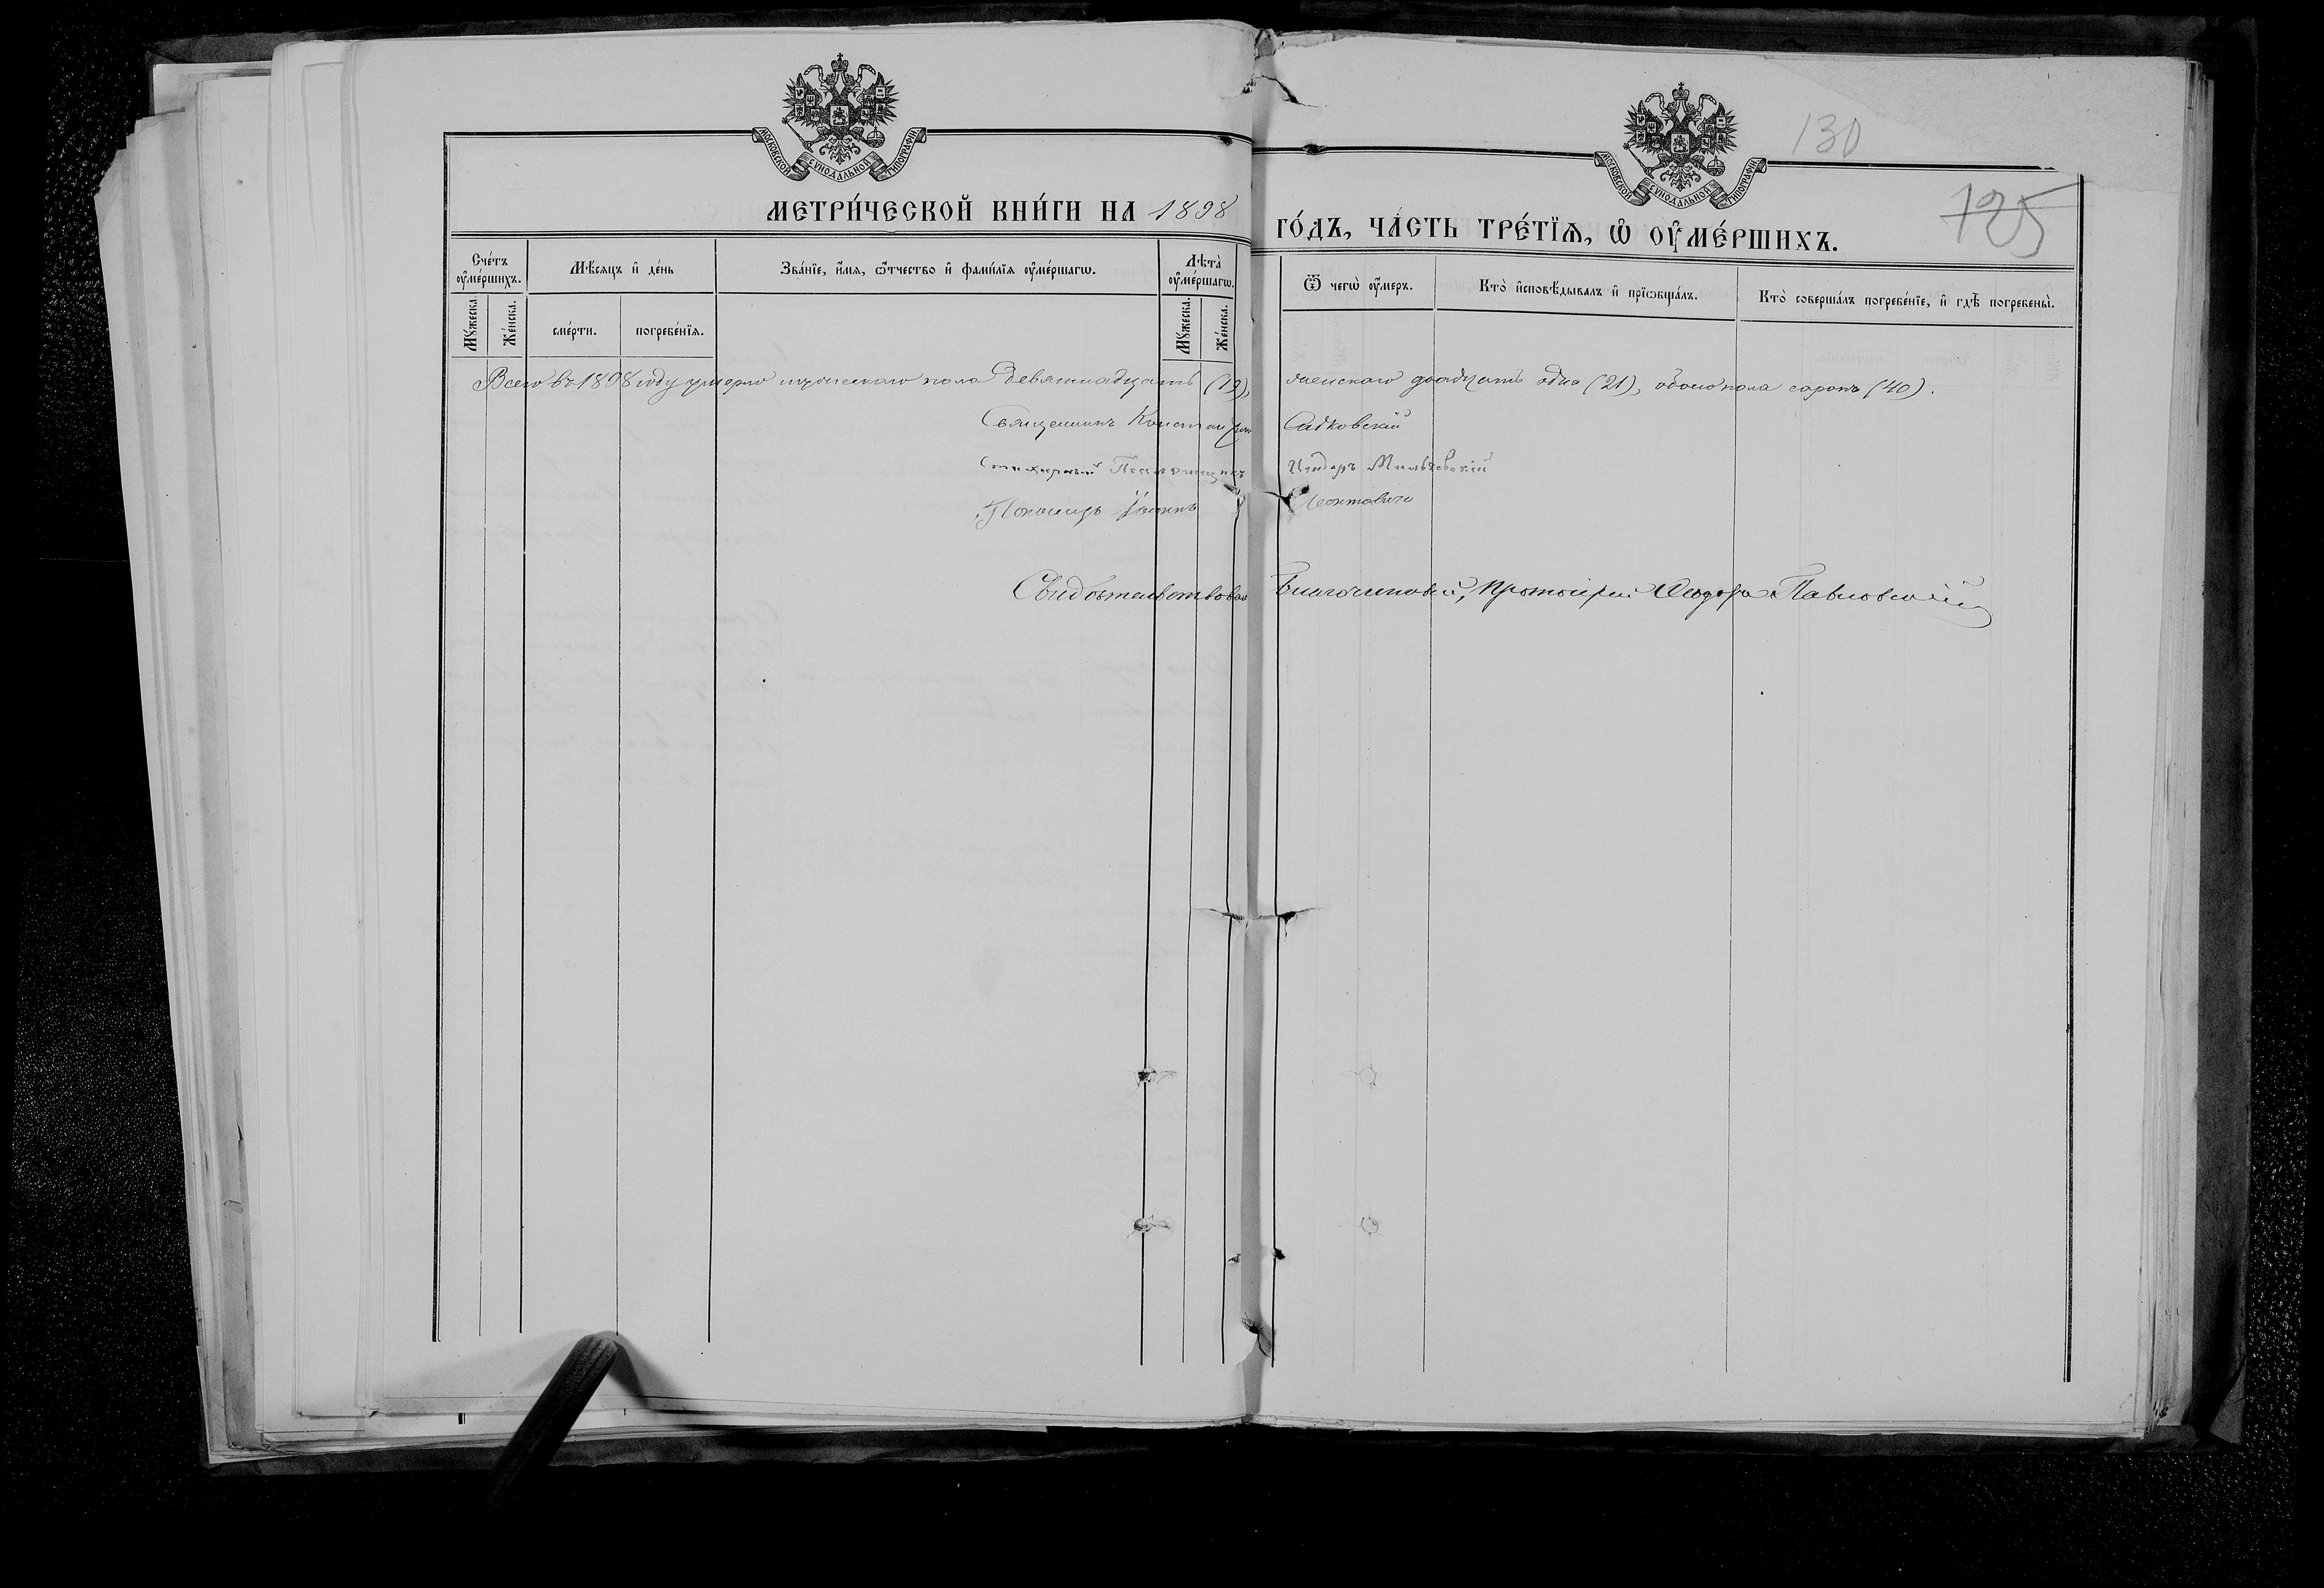 МОСКОВСКОЙ СѴНОДАЛЬНОЙ ТИПОГРАФІИ
МОСКОВСКОЙ СѴНОДАЛЬНОЙ ТИПОГРАФІИ
130
125
МЕТРИ́ЧЕСКОЙ КНИ́ГИ НА 1898 ГО́ДЪ, ЧА́СТЬ ТРЕ́ТЇѦ, Ѡ҆ ОУ҆МЕ́РШИХЪ.
Сче́тъ оу҆ме́ршихъ.
Мѣ́сяцъ и҆ де́нь
Зва́нїе, и҆́мя, ѻ҆́тчество и҆ фами́лїя оу҆ме́ршагѡ.
Лѣта̀ оу҆ме́ршагѡ.
Ѿ чегѡ̀ оу҆́меръ.
Кто̀ и҆сповѣ́дывалъ и҆ прїѡбща́лъ.
Кто̀ соверша́лъ погребе́нїе, и҆ гдѣ̀ погребены̀.
Мꙋ́жеска.
Же́нска.
сме́рти.
погребе́нїя.
Мꙋ́жеска.
Же́нска.
Всего въ 1898 году умерло мужескаго пола девятнадцать (19), женскаго двадцать одна (21), обоего пола сорокъ (40).
Священникъ Константинъ Садковскій
Псаломщикъ
Свидѣтельствовалъ Благочинный, Протоіерей Ѳеодоръ Павловскій